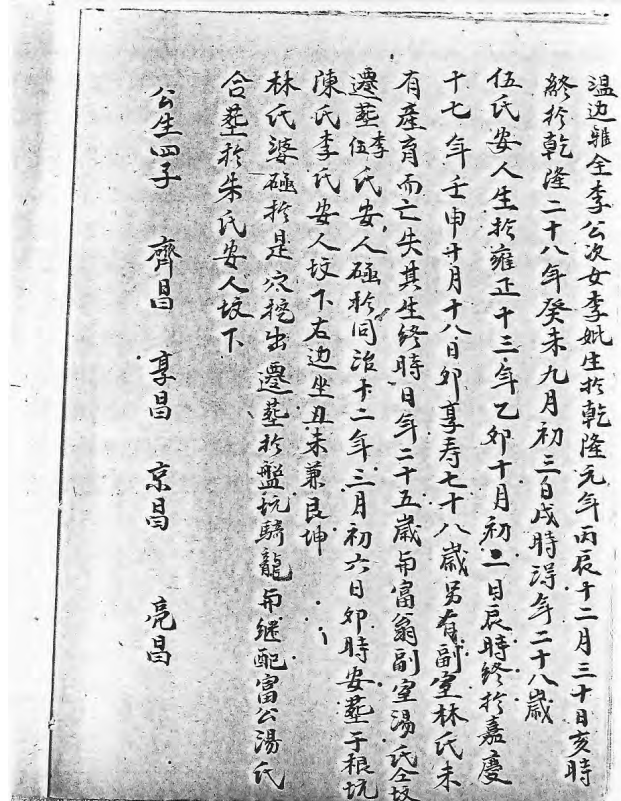 温边雅全李公次女李妣生扵乾隆元年丙辰十二月三十日亥時
終扵乾隆二十八年癸未九月初三日戌時淂年二十八歲
伍氏安人生扵雍正十三年乙卯十月初二日辰時終扵嘉慶
十七年壬申廿月十八日卯享寿七十八歲另有副室林氏未
有產育而亡失其生終時日年二十五歲与富翁副室湯氏仝坟
遷塟李伍氏安人硧扵同治十二年三月初六日卯時安塟于稂坑
陳氏李氏安人坟下右边坐丑未兼艮坤
林氏婆硧扵是穴挖出遷塟扵盤坑騎龍与継配富公湯氏
合塟扵朱氏安人坟下
公生四子 齊昌 享昌 京昌 亮昌